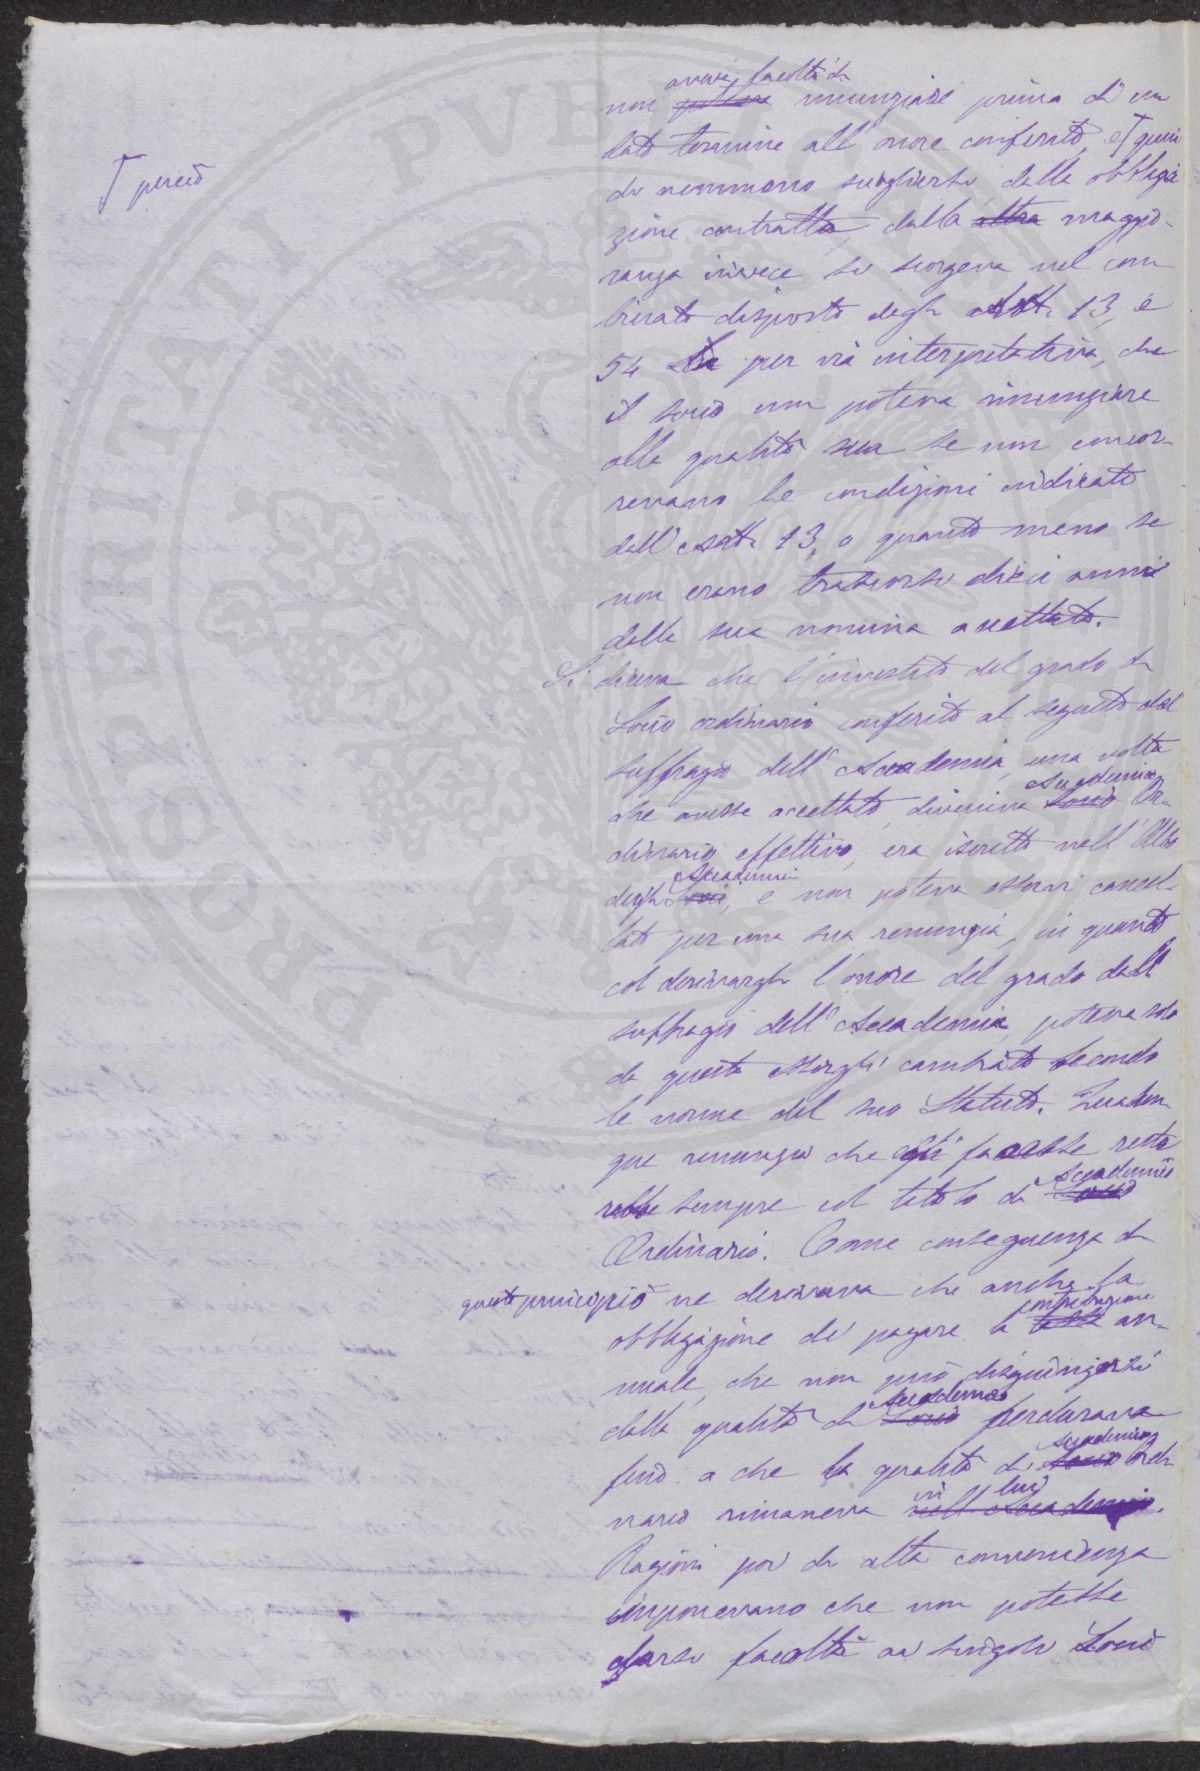 avere facoltà di
non potere rinunziare prima di un
dato termine all'onore conferito, e ꟻ quin
ꟻ perciò
di nemmeno sciogliersi dalla obbliga
zione contratta, dalla altra maggio-
ranza invece si scorgeva nel com
binato disposto degli Artt. 13, e
54 per via interpretativa, che
il socio non poteva rinunziare
alla qualità sua se non concor-
revano le condizioni indicate
dall'Art. 13, o quanto meno se
non erano trascorsi dieci anni
dalla sua nomina accettata.
Si diceva che l'investito del grado di
Socio ordinario conferito al seguito del
suffragio dell'Accademia, una volta
Accademico
che avesse accettato, diveniva Socio Or-
dinario effettivo, era iscritto nell'Albo
Accademici
degli Soci, e non poteva esservi cancel-
lato per una sua renunzia, in quanto
col derivargli l'onore del grado dall
suffragio dell'Accademia, poteva solo
da questa essergli cambiato secondo
le norme del suo Statuto. Qualun
que renunzia che egli facesse reste
Accademico
rebbe sempre col titolo di Socio
Ordinario. Come conseguenza di
questo principio ne derivava che anche la
contribuzione
obbligazione di pagare la tassa an-
nuale, che non può disgiungersi
Accademico
dalla qualità di Socio perdurava
Accademico
fino a che la qualità di Socio Ordi
in lui
nario rimaneva nell'Accademia.
Ragioni poi di alta convenienza
imponevano che non potesse
darsi facoltà ai singoli Soci